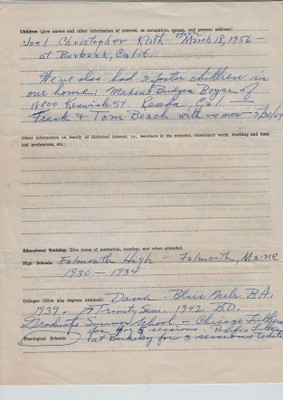 Children (give names and other information of interest, as occupation, spouse, and present address):
Joel Christopher Klith March 18, 1956 -
at Burbank, Calif.
We've also had 3 foster children in
our home: Bridges Boyce of
18800 Keswick St. Reseda, Cal -
Frank & Tom Beach with us now
Other information on family of historical interest, i.e., members in the ministry, missionary work, teaching and medical professions, etc.:
Educational Training: (Give name of institution, location, and when attended.
High Schools: Falmouth High - Falmouth, Maine
1930 - 1934
Colleges (Give also degrees attained): Dana - Blair Nebr B.A.
1939. Trinity Sem. 1942 B.D.
Graduate Summer School - Chicago
for sessions. Pacific
Theological Schools: at Berkeley for 3 sessions to date